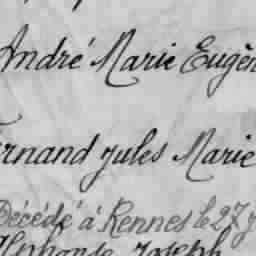 André Marie Eugèn
ernand Jules Marie
Décédé à Rennes le 27 J
Alphonse Joseph